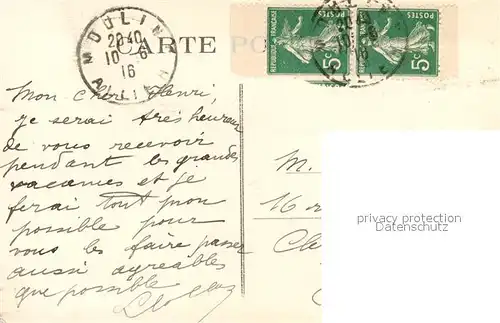 MOULIN
20 40
10-6
16
ALLIER
CARTE PO
RÉPUBLIQUE FRANÇAISE
POSTES
5c
POSTES
5c
Mon cher Henri,
Je serai très heureux
de vous recevoir
pendant les grandes
vacances et je
ferai tout mon
possible pour
vous les faire passer
aussi agréables
que possible
M.
16 r
Cle
privacy protection
Datenschutz